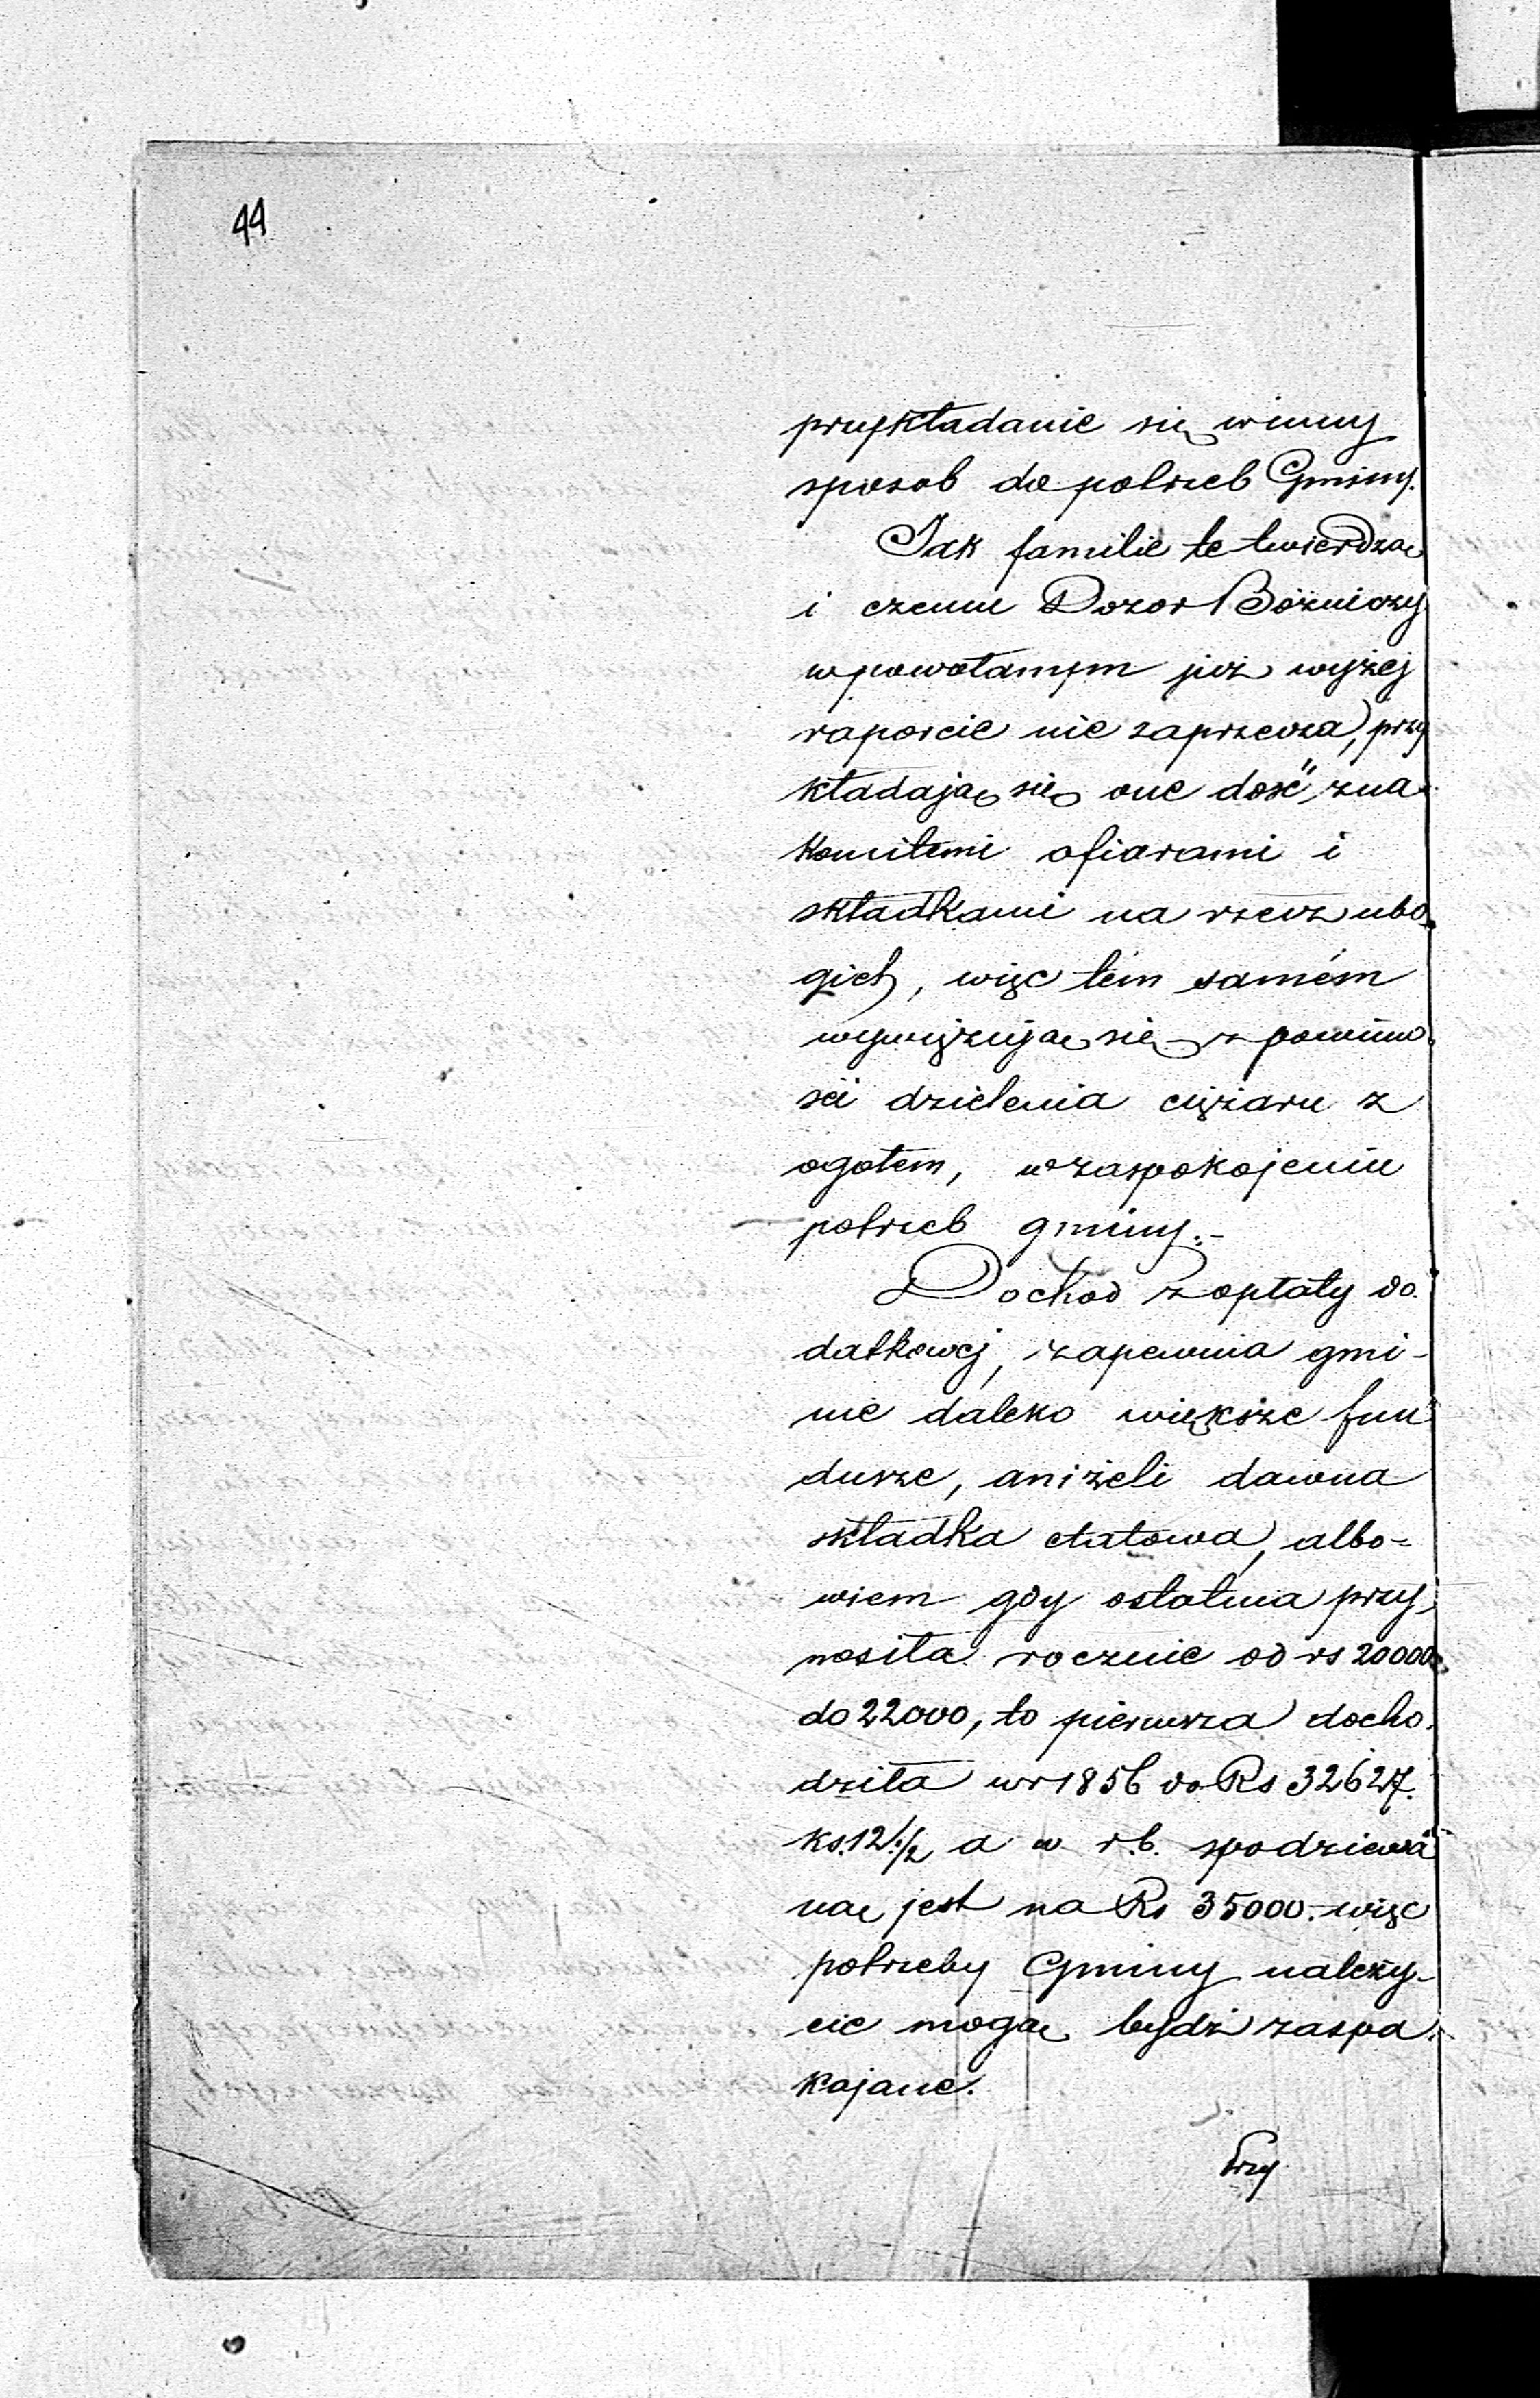 44
przykładanie się w inny
sposob do potrzeb Gminy.
Jak familie te twierdzą
i czemu Dozor Bóżniczy
w powołanym już wyżej
raporcie nie zaprzecza, przy
kładają się one dość zna-
komitemi ofiarami i
składkami na rzecz ubo
gich, więc tém samém
wywięzują się z powinno
ści dzielenia ciężaru z
ogołem, w zaspokojeniu
potrzeb gminy.-
Dochod z opłaty do
datkowej, zapewnia gmi-
nie daleko większe fun
dusze, aniżeli dawna
składka etatowa, albo-
wiem gdy ostatnia przy
nosiła rocznie od rs 20000
do 22000, to pierwsza docho
dziła w r 1856 do Rs 32627.
ks. 12 1/2 a w r.b. spodziewa
ną jest na Rs 35000. więc
potrzeby Gminy należy-
cie mogą bydź zaspa
kajane.
Przy